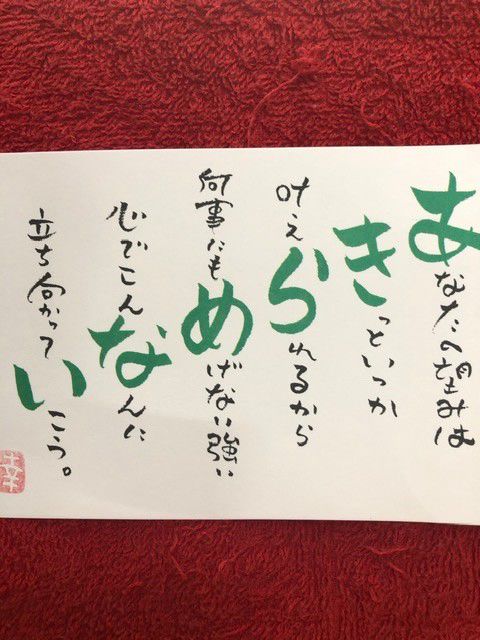 あなたの望みは
きっといつか
叶えられるから
何事にもめげない強い
心でこんなんに
立ち向かっていこう。
幸